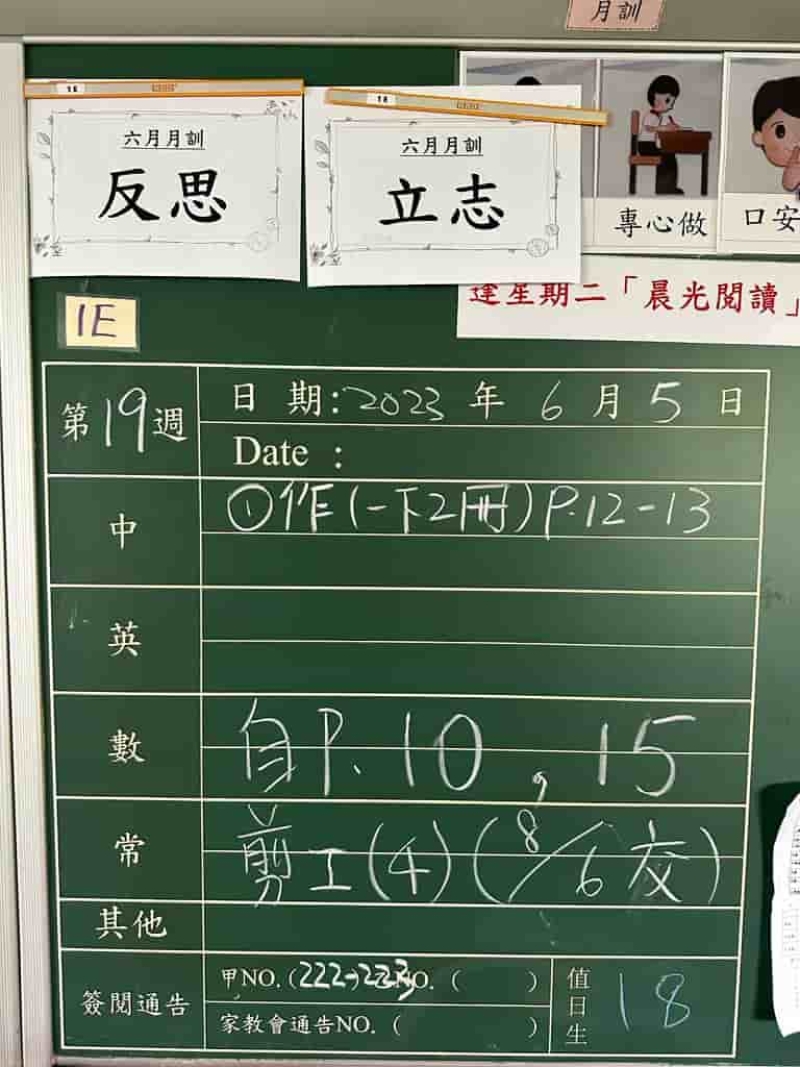 月訓
六月月訓
反思
六月月訓
立志
專心做
口安
逢星期二「晨光閱讀」
1E
第19週
日 期:2023 年 6 月 5 日
Date :
中
①作(一下2冊)P.12-13
英
數
自P.10,15
常
剪工(4)(8/6交)
其他
簽閱通告
甲NO.(222→223 NO. ( )
家教會通告NO. ( )
值日生
18